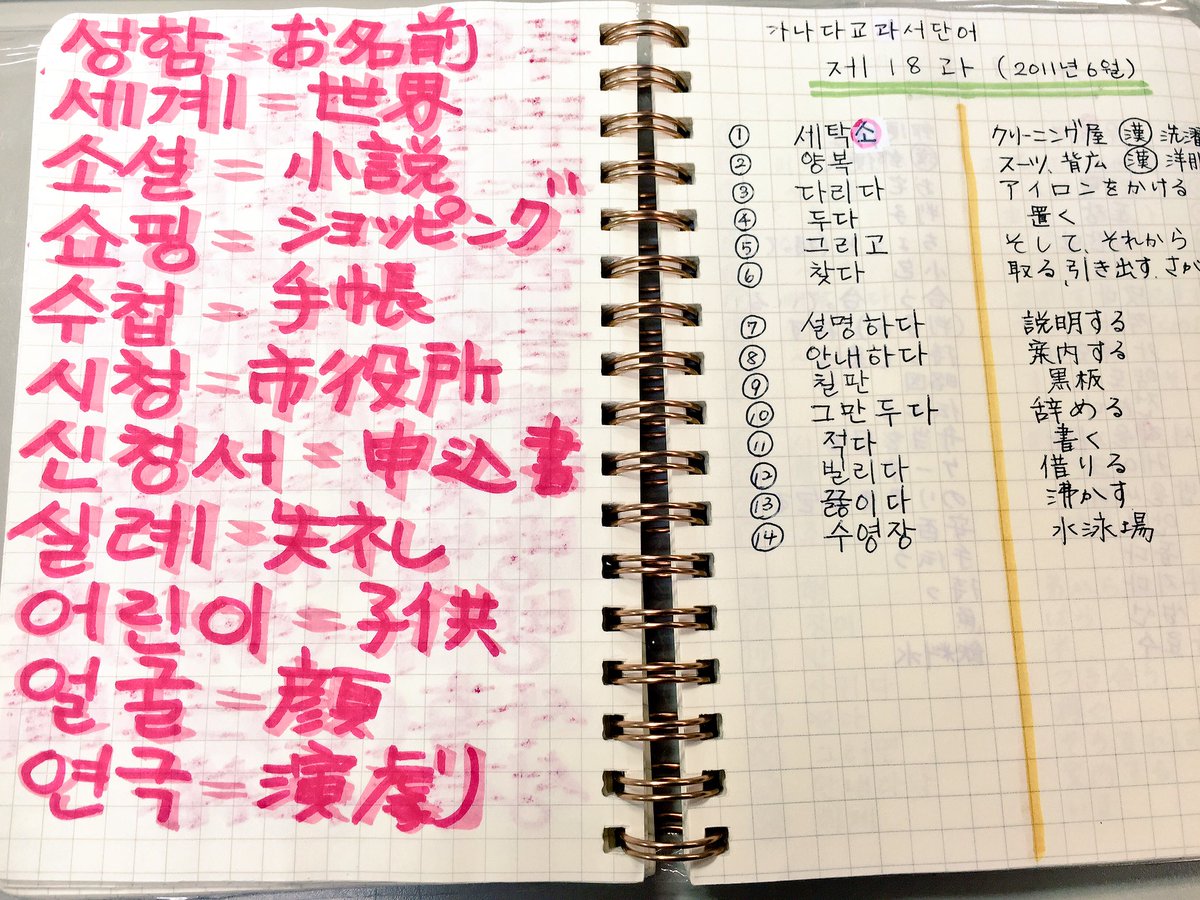 성함=お名前
세계=世界
소설=小説
쇼핑=ショッピング
수첩=手帳
시청=市役所
신청서=申込書
실례=失礼
어린이=子供
얼굴=顔
연극=演劇
가나다교과서단어
제18과 (2011년6월)
① 세탁소 クリーニング屋 漢 洗濯
② 양복 スーツ、背広 漢 洋服
③ 다리다 アイロンをかける
④ 두다 置く
⑤ 그리고 そして、それから
⑥ 찾다 取る、引き出す、さが
⑦ 설명하다 説明する
⑧ 안내하다 案内する
⑨ 칠판 黒板
⑩ 그만두다 辞める
⑪ 적다 書く
⑫ 빌리다 借りる
⑬ 끓이다 沸かす
⑭ 수영장 水泳場